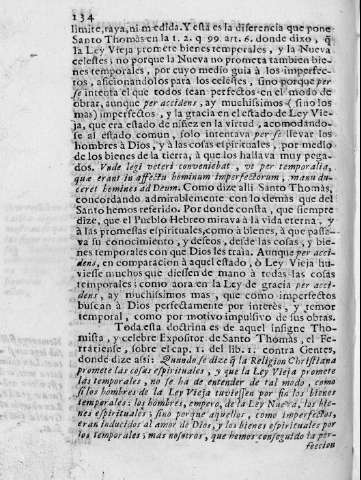 134
limite, raya, ni medida. Y esta es la diferencia que pone
Santo Thomàs en la 1. 2. q 99. art. 6. donde dixo, q̃
la Ley Vieja promete bienes temporales, y la Nueva
celestes: no porque la Nueva no prometa tambien bie-
nes temporales, por cuyo medio guia à los imperfec-
tos, aficionandolos para los celestes, sino porque per
se intenta el que todos sean perfectos en el modo de
obrar, aunque per accidens, ay muchissimos (sino los
mas) imperfectos, y la gracia en el estado de Ley Vie-
ja, que era estado de niñez en la virtud, acomodando-
se al estado comun, solo intentava per se llevar los
hombres à Dios, y à las cosas espirituales, por medio
de los bienes de la tierra, à que los hallava muy pega-
dos. Vnde legi veteri conveniebat, vt per temporalia,
quæ erant in affectu hominum imperfectorum, manudu-
ceret homines ad Deum. Como dize alli Santo Thomàs,
concordando admirablemente con lo demàs que del
Santo hemos referido. Por donde consta, que siempre
dize, que el Pueblo Hebreo mirava à la vida eterna, y
à las promessas espirituales, como à bienes, à que passa-
va su conocimiento, y deseos, desde las cosas, y bie-
nes temporales con que Dios les traìa. Aunque per acci-
dens, en comparacion à aquel estado, ò Ley Vieja hu-
viesse muchos que diessen de mano à todas las cosas
temporales; como aora en la Ley de gracia per acci-
dens, ay muchissimos mas, que como imperfectos
buscan à Dios perfectamente por interès, y temor
temporal, como por motivo impulsivo de sus obras.
Toda esta doctrina es de aquel insigne Tho-
mista, y celebre Expositor de Santo Thomàs, el Fe-
rratiense, sobre el cap. 11. del lib. 1. contra Gentes,
donde dize assi: Quando se dize q̃ la Religion Christiana
promete las cosas espirituales, y que la Ley Vieja promete
las temporales, no se ha de entender de tal modo, como
si los hombres de la Ley Vieja tuviessen por fin los bienes
temporales: los hombres, empero, de la Ley Nueva, los bie-
nes espirituales; sino porque aquellos, como imperfectos,
eran inducidos al amor de Dios, y los bienes espirituales por
los temporales; mas nosotros, que hemos conseguido la per-
feccion